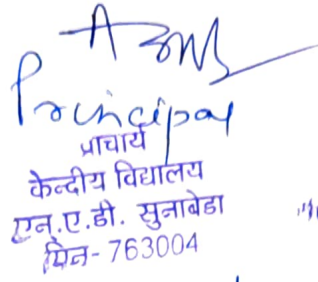 Principal
प्राचार्य
केन्दीय विद्यालय
एन.ए.डी. सुनाबेडा
पिन- 763004